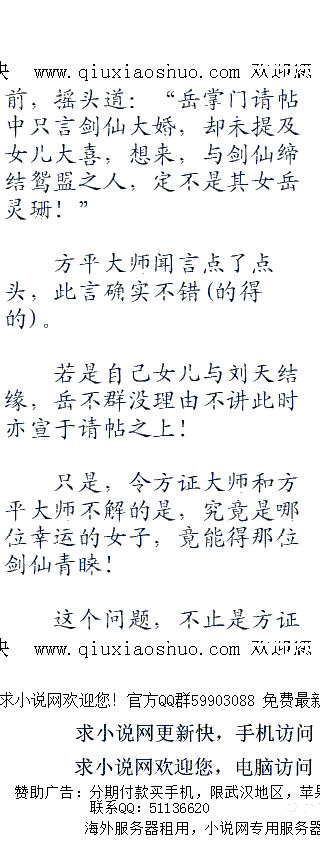 快 www.qiuxiaoshuo.com 欢迎您
前，摇头道：“岳掌门请帖
中只言剑仙大婚，却未提及
女儿大喜，想来，与剑仙缔
结鸳盟之人，定不是其女岳
灵珊！”
方平大师闻言点了点
头，此言确实不错(的得
的)。
若是自己女儿与刘天结
缘，岳不群没理由不讲此时
亦宣于请帖之上！
只是，令方证大师和方
平大师不解的是，究竟是哪
位幸运的女子，竟能得那位
剑仙青睐！
这个问题，不止是方证
快 www.qiuxiaoshuo.com 欢迎您
求小说网欢迎您！官方QQ群59903088 免费最新
求小说网更新快，手机访问
求小说网欢迎您，电脑访问
赞助广告：分期付款买手机，限武汉地区，苹果
联系QQ：51136620
海外服务器租用，小说网专用服务器